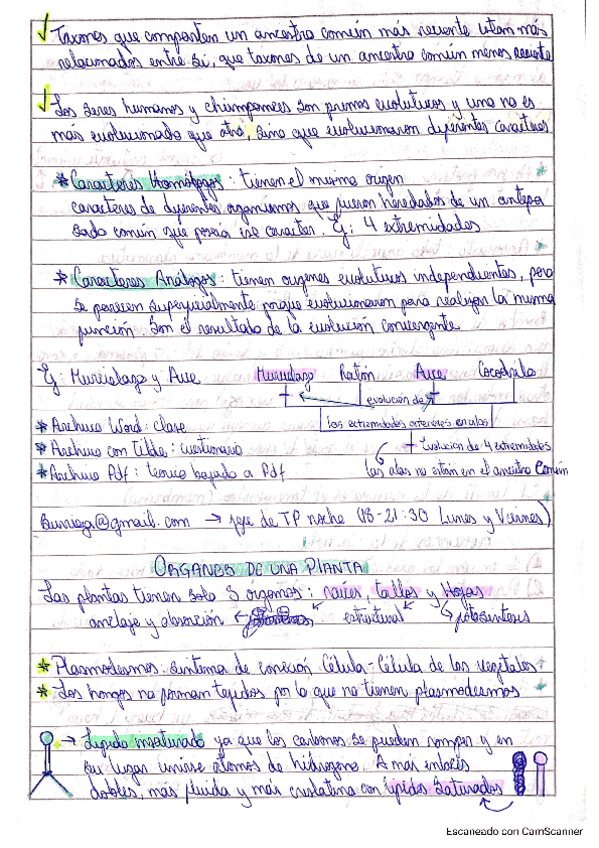 ✓ Taxones que comparten un ancestro común más reciente están más
relacionados entre sí, que taxones de un ancestro común menos reciente
✓ Los seres humanos y chimpancés son primos evolutivos y uno no es
mas evolucionado que otro, sino que evolucionaron diferentes caracteres
* Caracteres Homólogos: tienen el mismo origen
caracteres de diferentes organismos que fueron heredados de un antepa
sado común que poseía ese caracter. Ej: 4 extremidades
* Caracteres Análogos: tienen origenes evolutivos independientes, pero
se parecen superficialmente porque evolucionaron para realizar la misma
función. Son el resultado de la evolución convergente
Ej: Murcielago y Ave Murcielago Ratón Aves Cocodrilo
evolución de
* Archivo Word: clase las extremidades anteriores en alas
* Archivo con Tilde: cuestionario Evolucion de 4 extremidades
* Archivo Pdf: teorico bajado a Pdf Las alas no están en el ancestro Común
@gmail.com → jefe de TP noche (18-21:30 Lunes y Viernes)
ORGANOS DE UNA PLANTA
Las plantas tienen solo 3 órganos: raíces, tallos y Hojas
anclaje y absorción estructural fotosintesis
* Plasmodesmos: sintema de conexión Célula-Célula de los vegetales
* Los hongos no forman tejidos por lo que no tienen plasmodesmos
→ Lipido insaturado ya que los carbonos se pueden romper y en
su lugar unirse átomos de hidrogeno. A más enlaces
dobles, más fluida y más cristalina con lipidos Saturados
Escaneado con CamScanner